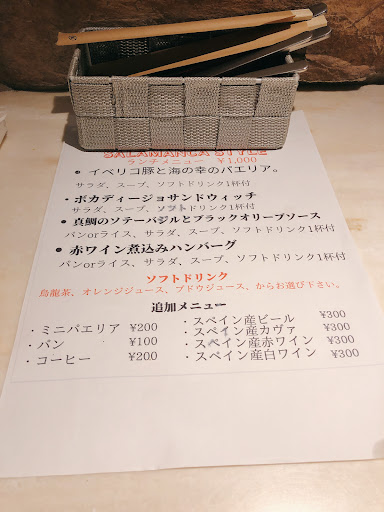 SALAMANCA STYLE
ランチメニュー ¥1,000
● イベリコ豚と海の幸のパエリア。
サラダ、スープ、ソフトドリンク1杯付
・ボカディージョサンドウィッチ
サラダ、スープ、ソフトドリンク1杯付
● 真鯛のソテーバジルとブラックオリーブソース
パンorライス、サラダ、スープ、ソフトドリンク1杯付
● 赤ワイン煮込みハンバーグ
パンorライス、サラダ、スープ、ソフトドリンク1杯付
ソフトドリンク
烏龍茶、オレンジジュース、ブドウジュース、からお選び下さい。
追加メニュー
・ミニパエリア ¥200
・パン ¥100
・コーヒー ¥200
・スペイン産ビール ¥300
・スペイン産カヴァ ¥300
・スペイン産赤ワイン ¥300
・スペイン産白ワイン ¥300